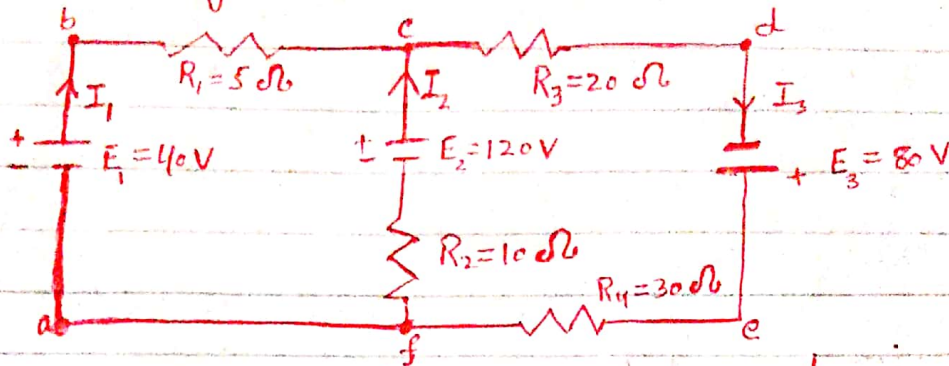 b c d
R₁=5 Ω R₃=20 Ω
I₁ I₂ I₃
+ E₁=40V ± E₂=120V + E₃=80V
R₂=10 Ω
R₄=30 Ω
a f e